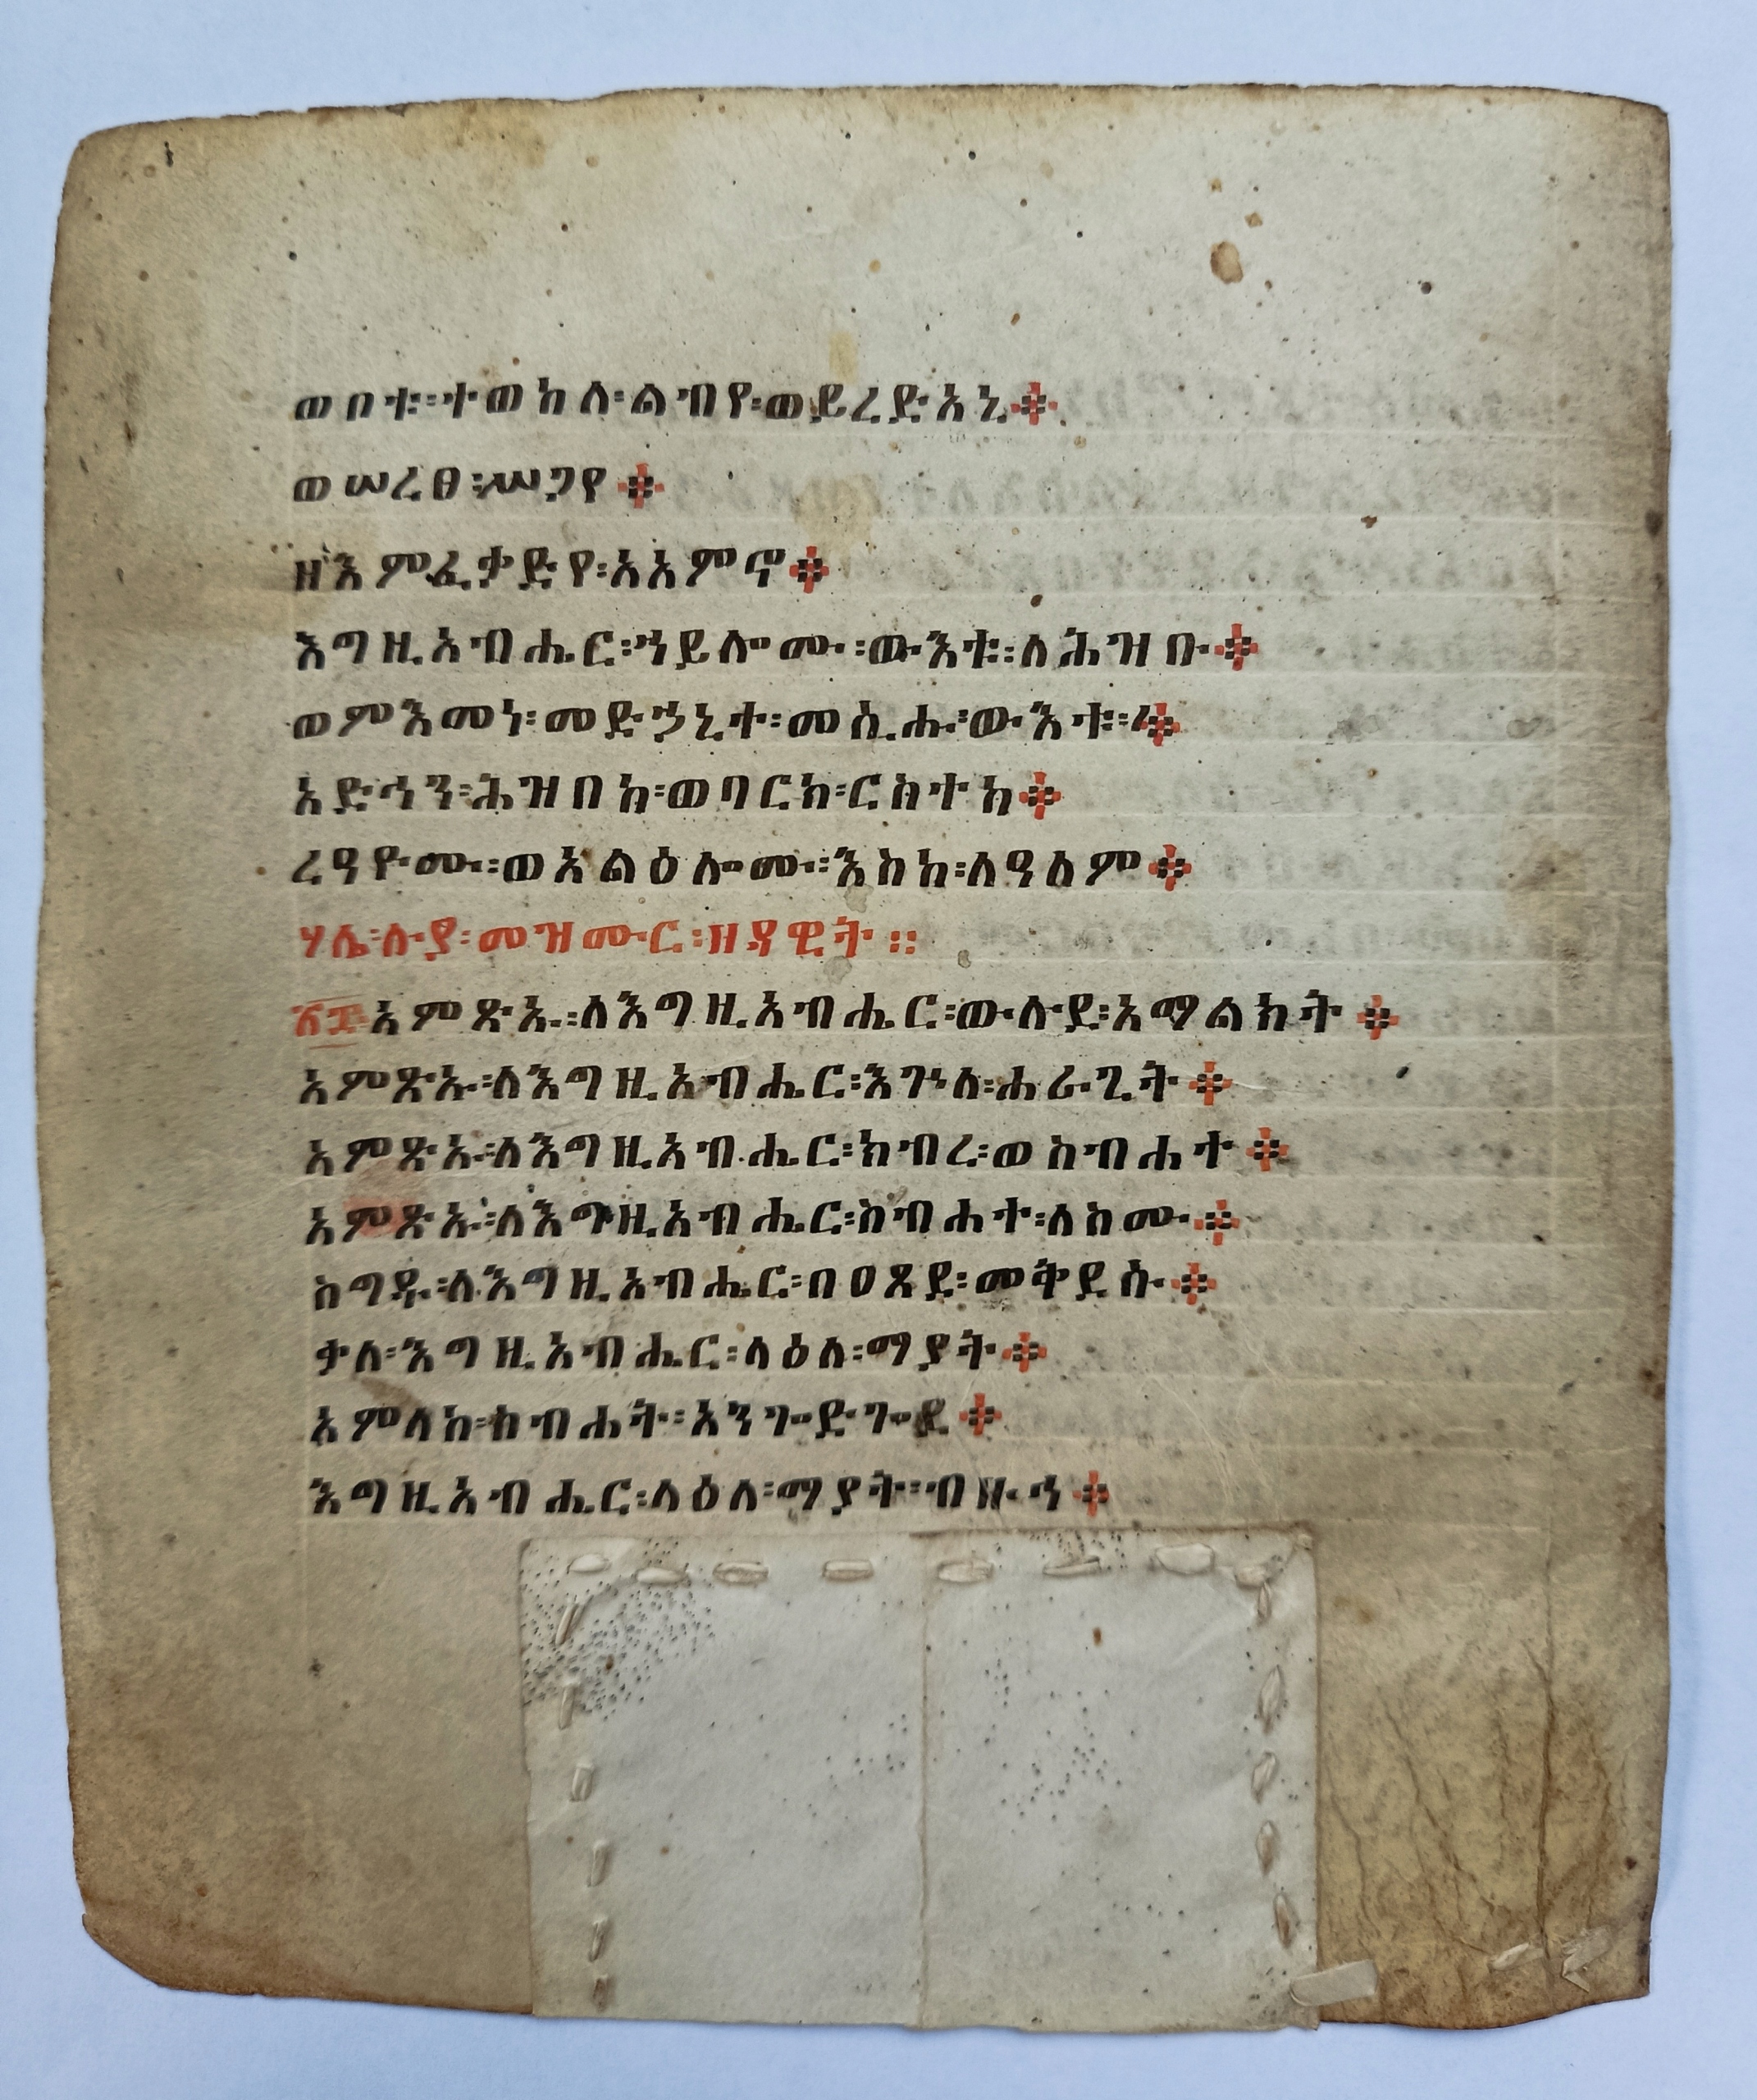 ወቦቱ፡ተወከለ፡ልብየ፡ወይረድአኒ፨
ወሠረፀ፡ሥጋየ፨
ዘእምፈቃድየ፡አአምኖ፨
እግዚአብሔር፡ኀይሎሙ፡ውእቱ፡ለሕዝቡ፨
ወምእመነ፡መድኃኒተ፡መሲሑ፡ውእቱ፡፨
አድኅን፡ሕዝበከ፡ወባርክ፡ርስተከ፨
ረዓዮሙ፡ወአልዕሎሙ፡እስከ፡ለዓለም፨
ሃሌ፡ሉያ፡መዝሙር፡ዘዳዊት።
፳፰አምጽኡ፡ለእግዚአብሔር፡ውሉደ፡አማልክት፨
አምጽኡ፡ለእግዚአብሔር፡እጓለ፡ሐራጊት፨
አምጽኡ፡ለእግዚአብሔር፡ክብረ፡ወስብሐተ፨
አምጽኡ፡ለእግዚአብሔር፡ስብሐተ፡ለስሙ፨
ስግዱ፡ለእግዚአብሔር፡በዐጸደ፡መቅደሱ፨
ቃለ፡እግዚአብሔር፡ላዕለ፡ማያት፨
አምላከ፡ስብሐት፡አንጐድጐደ፨
እግዚአብሔር፡ላዕለ፡ማያት፡ብዙኅ፨